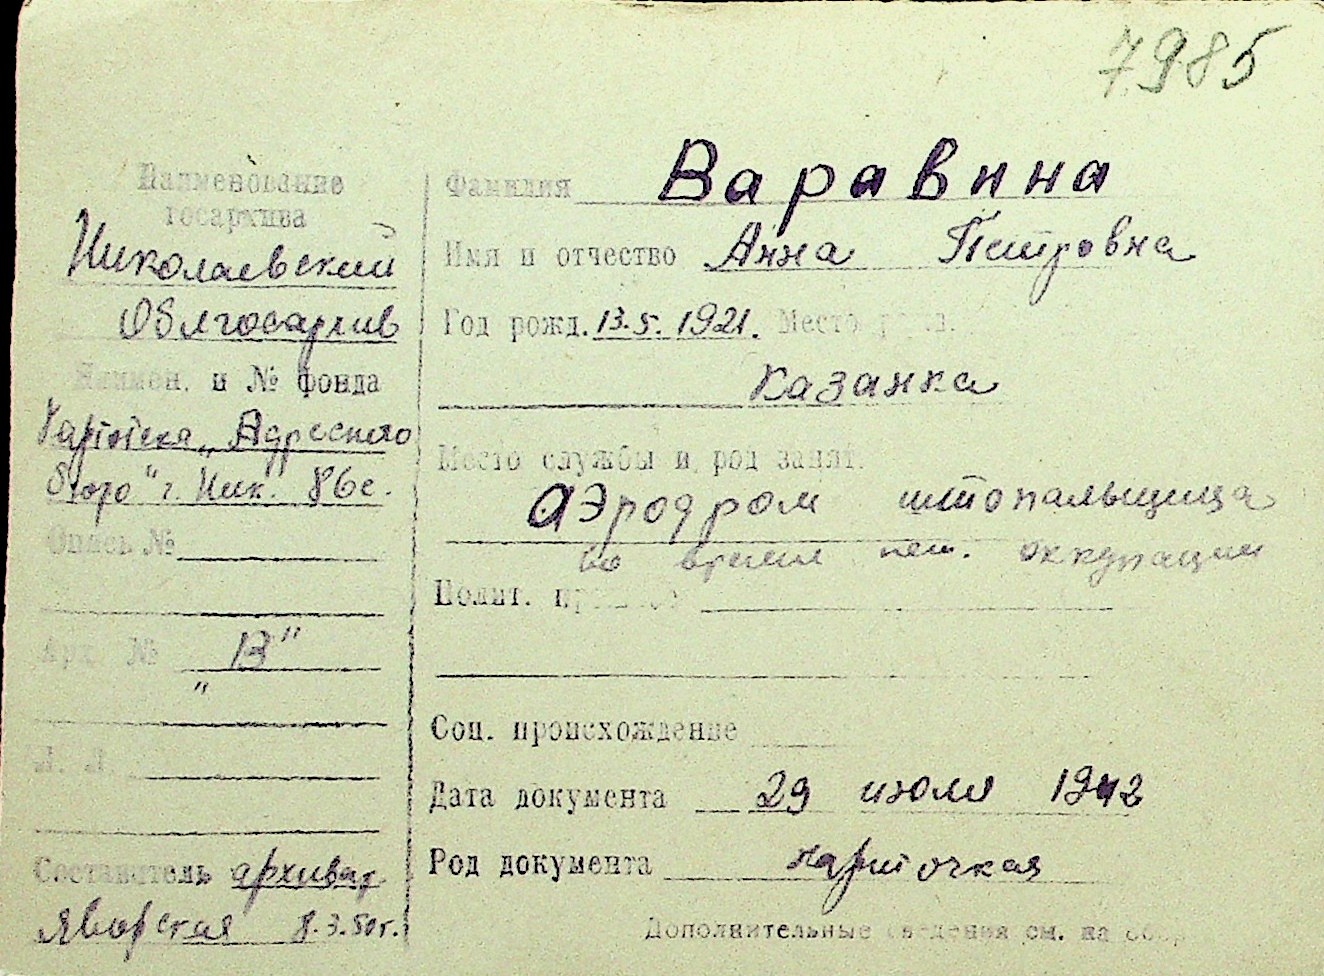 7985
Наименование
госархива
Николаевский
Облгосархив
Наимен. и № фонда
Картотека „Адресного
бюро" г. Ник. 86с.
Опись №
Арх. № „В"
"
Л. Л.
Составитель архивар.
Яворская 8.3.50г.
Фамилия Варавина
Имя и отчество Анна Петровна
Год рожд. 13.5.1921. Место рожд.
Казанка
Место службы и род занят.
аэродром штопальщица
во время нем. оккупации
Полит. процесс
Соц. происхождение
Дата документа 29 июля 1942
Род документа карточкая
Дополнительные сведения см. на обор.